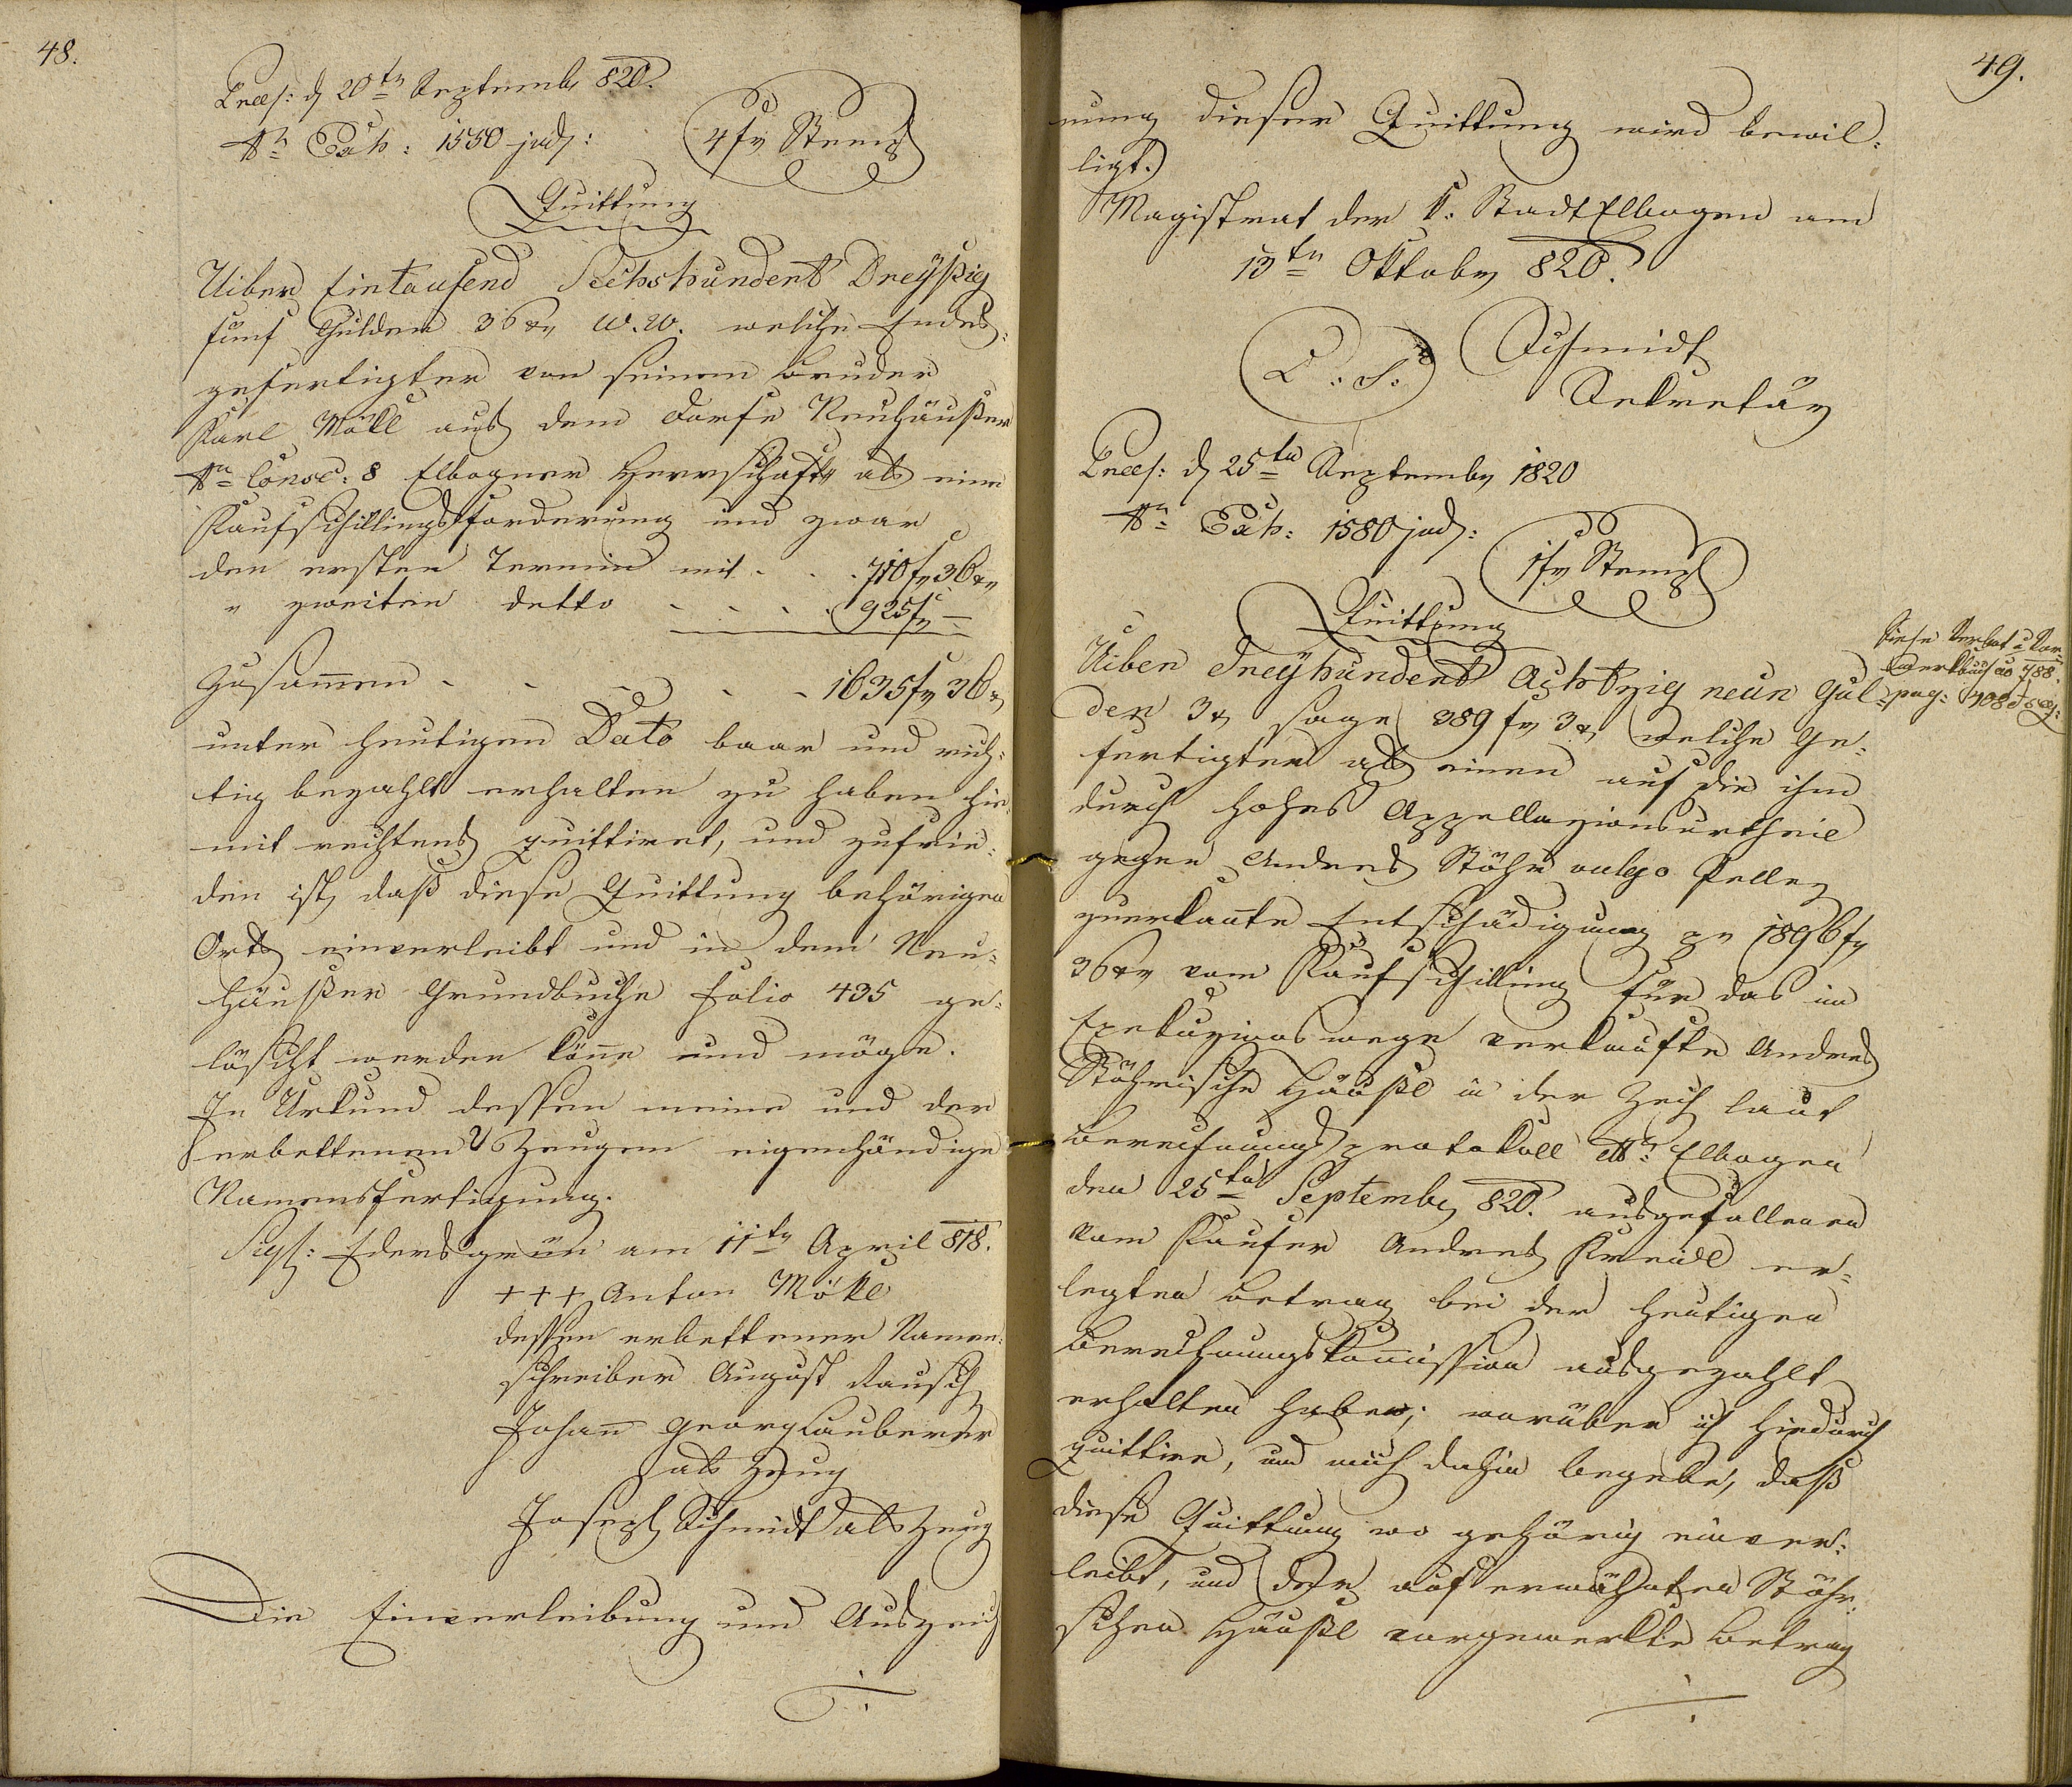 48.
Præs: d 20tn Septemb 820.
Nr Exh: 1550 jud:
4 fr Stemp
Quittung
Uiber Eintausend Sechshundert Dreyßig
fünf Gulden 36 xr W.W. welche Endes-
gefertigter von seinem Bruder
Karl Mökl aus dem Dorfe Neuhäußer
Nro Consc: 8 Elbogner Herrschaft als eine
Kaufschillingsforderung und zwar
den ersten Termin mit . . . 710 fr 36 xr
" zweiten detto . . . . 925 fr —
Zusammen . . . . . 1635 fr 36 x
unter heutigen Dato baar und rich-
tig bezahlt erhalten zu haben hie-
mit rechtens quittiret, und zufrie-
den ist, daß diese Quittung behörigen
Orts einverleibt und in dem Neu-
häußer Grundbuche folio 435 ge-
löscht werden könne und möge.
In Urkund dessen meine und der
erbettenen 2 Zeugen eigenhändige
Namensfertigung.
Sigl: Edersgrün am 11tn April 818.
+++ Anton Mökl
dessen erbettener Namen-
schreiber August Rausch
Johann Georg Lauberer
als Zeug
Joseph Schmidt als Zeug
Die Einverleibung und Auszeich
49.
nung dieser Quittung wird bewil-
ligt.
Magistrat der K. Stadt Elbogen am
13tn Oktober 820.
L. S. Schmidt
Sekretär
Præs: d 25tn September 1820
Nro Exh: 1580 jud:
1 fr Stemp
Quittung
Uiber Dreyhundert Achtzig neun Gul-
den 3 x sage 389 fr 3 x, welche Ge-
fertigter als einen auf die ihm
durch hohes Appellazionsurtheil
gegen Andreas Stöhr vulgo
zuerkannte Entschädigung pr 1896 fr
36 xr vom Kaufschilling für das im
Exekuzionswege verkaufte Andreas
Stöhrische Häußl in der Zech laut
Berechnungsprotokoll Elbogen
den 25ten September 820. ausgefallenen
vom Kaufer Andreas er-
legten Betrag bei der heutigen
Berechnungskommission ausgezahlt
erhalten haben; worüber ich hiedurch
quittire, und mich dahin begebe, daß
diese Quittung wo gehörig einver-
leibt, und der auf erwähnten Stöhr-
ischen Häußl vorgemerkte Betrag
Diese
788.
pag: 708